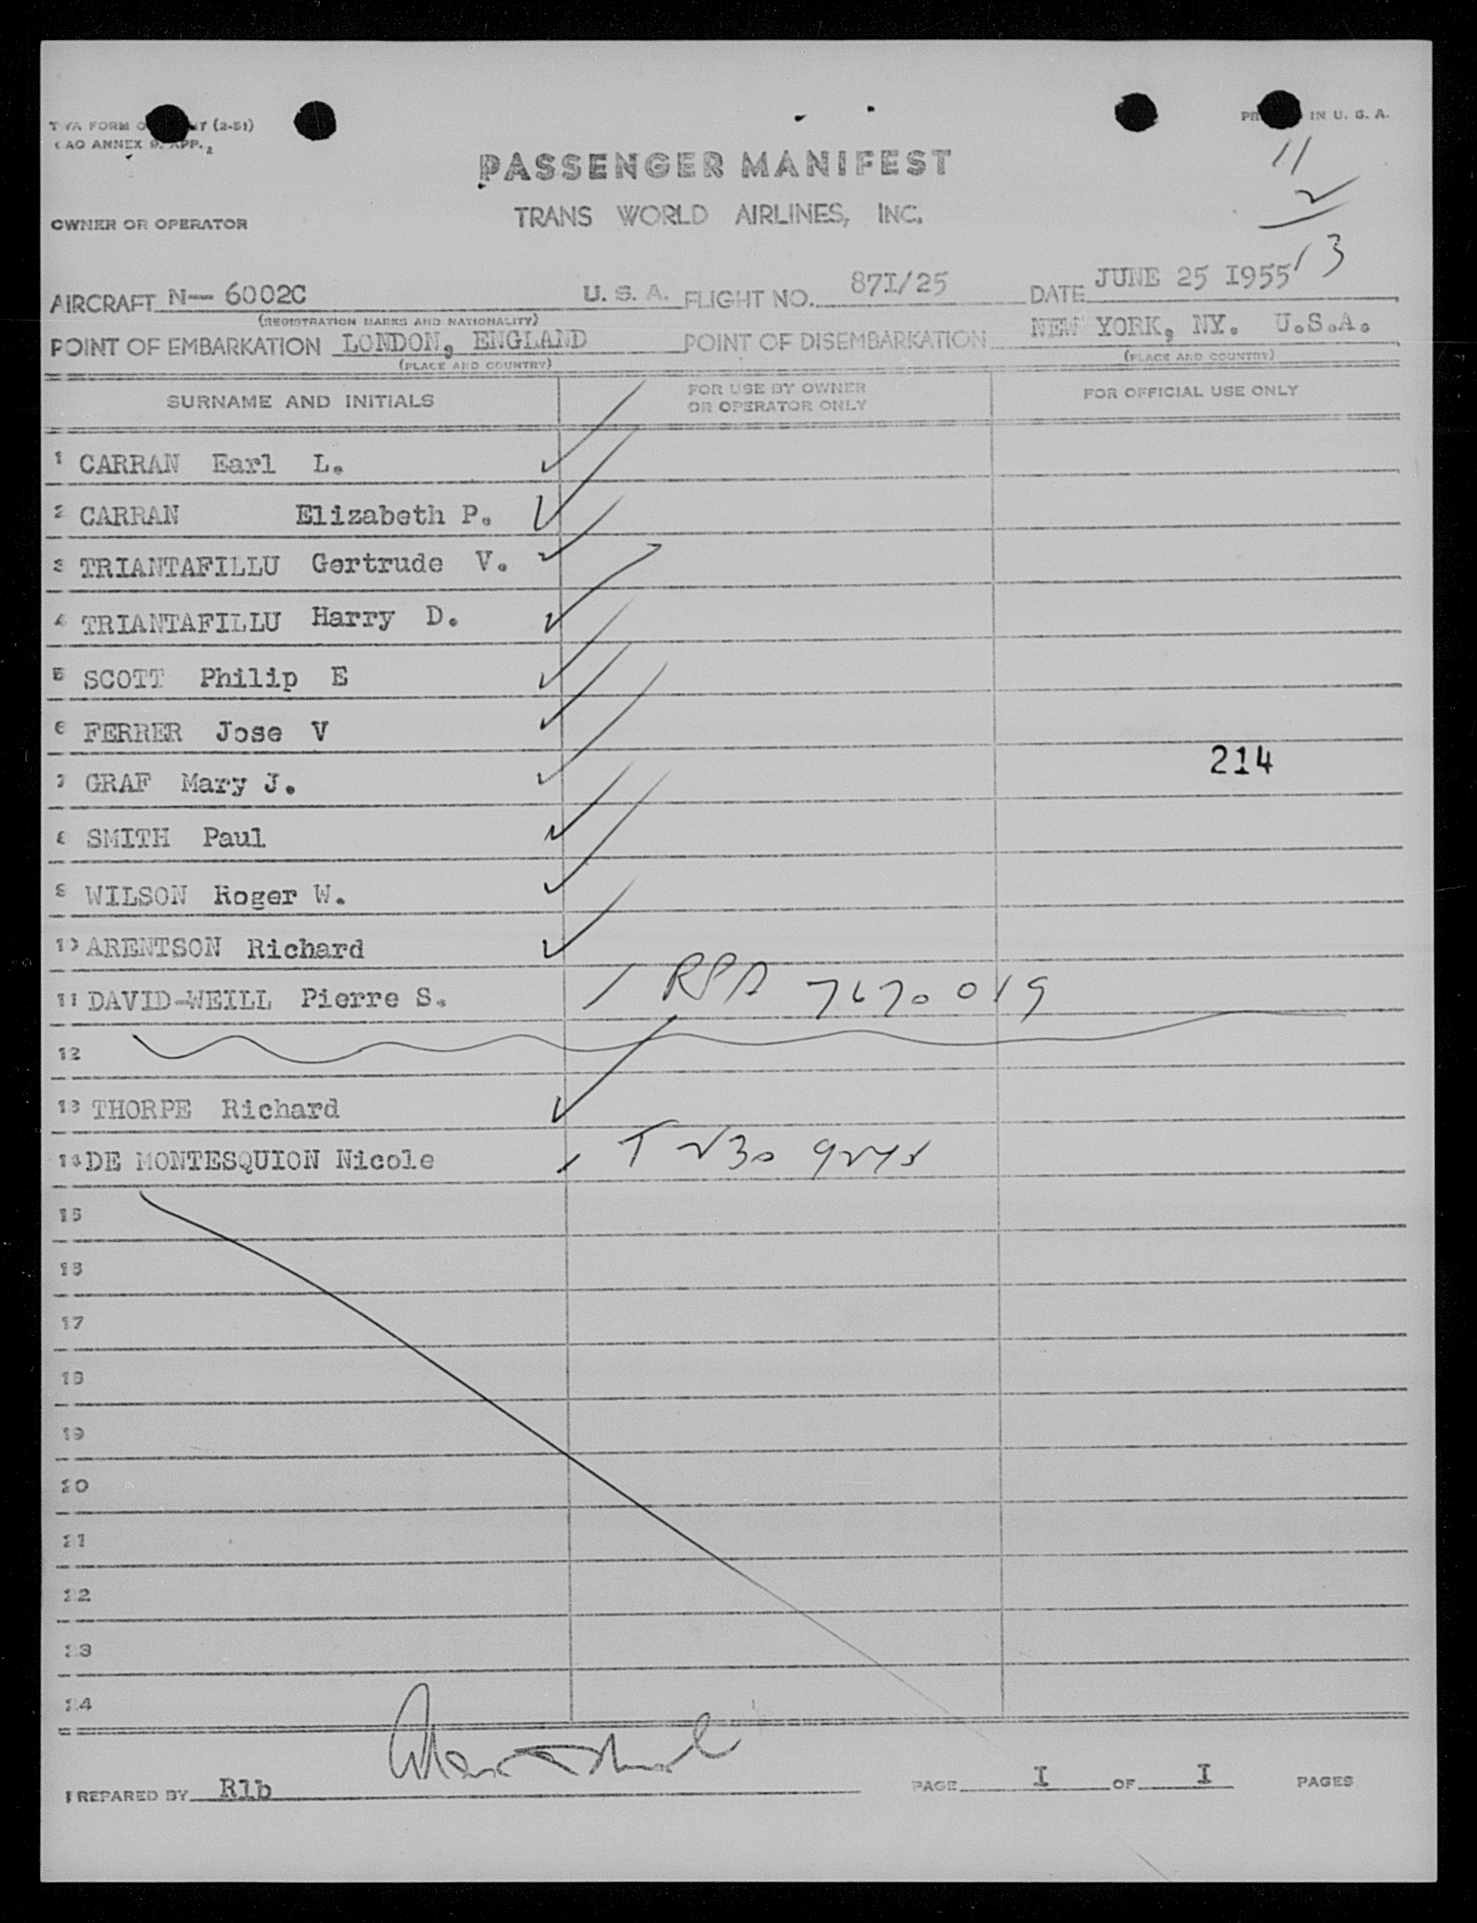 TWA FORM O NT (2-51)
ICAO ANNEX 9. APP. 2
PRINTED IN U. S. A.
11
2
13
PASSENGER MANIFEST
OWNER OR OPERATOR
TRANS WORLD AIRLINES, INC.
AIRCRAFT N-- 6002C U. S. A. FLIGHT NO. 87I/25 DATE JUNE 25 I955
(REGISTRATION MARKS AND NATIONALITY)
POINT OF EMBARKATION LONDON, ENGLAND POINT OF DISEMBARKATION NEW YORK, NY. U.S.A.
(PLACE AND COUNTRY) (PLACE AND COUNTRY)
SURNAME AND INITIALS FOR USE BY OWNER OR OPERATOR ONLY FOR OFFICIAL USE ONLY
1 CARRAN Earl L.
2 CARRAN Elizabeth P.
3 TRIANTAFILLU Gertrude V.
4 TRIANTAFILLU Harry D.
5 SCOTT Philip E
6 FERRER Jose V
214
7 GRAF Mary J.
8 SMITH Paul
9 WILSON Roger W.
10 ARENTSON Richard
11 DAVID-WEILL Pierre S. 7670019
12
13 THORPE Richard
14 DE MONTESQUION Nicole
15
16
17
18
19
20
21
22
23
24
PREPARED BY Rlb PAGE I OF I PAGES